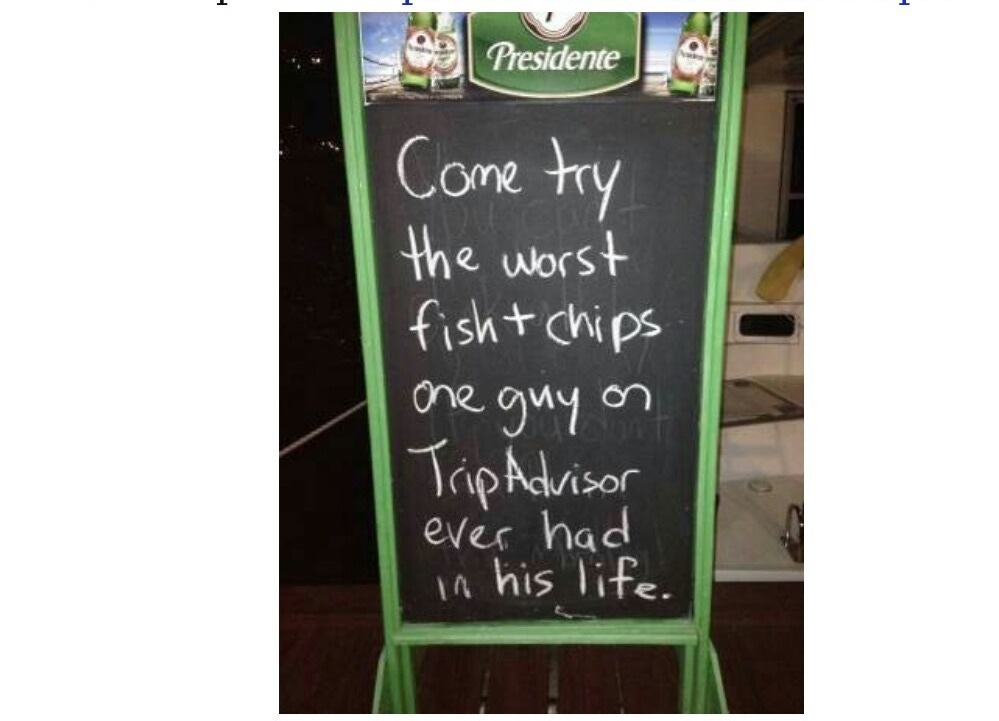 Presidente
Come try
the worst
fish + chips
one guy on
TripAdvisor
ever had
in his life.